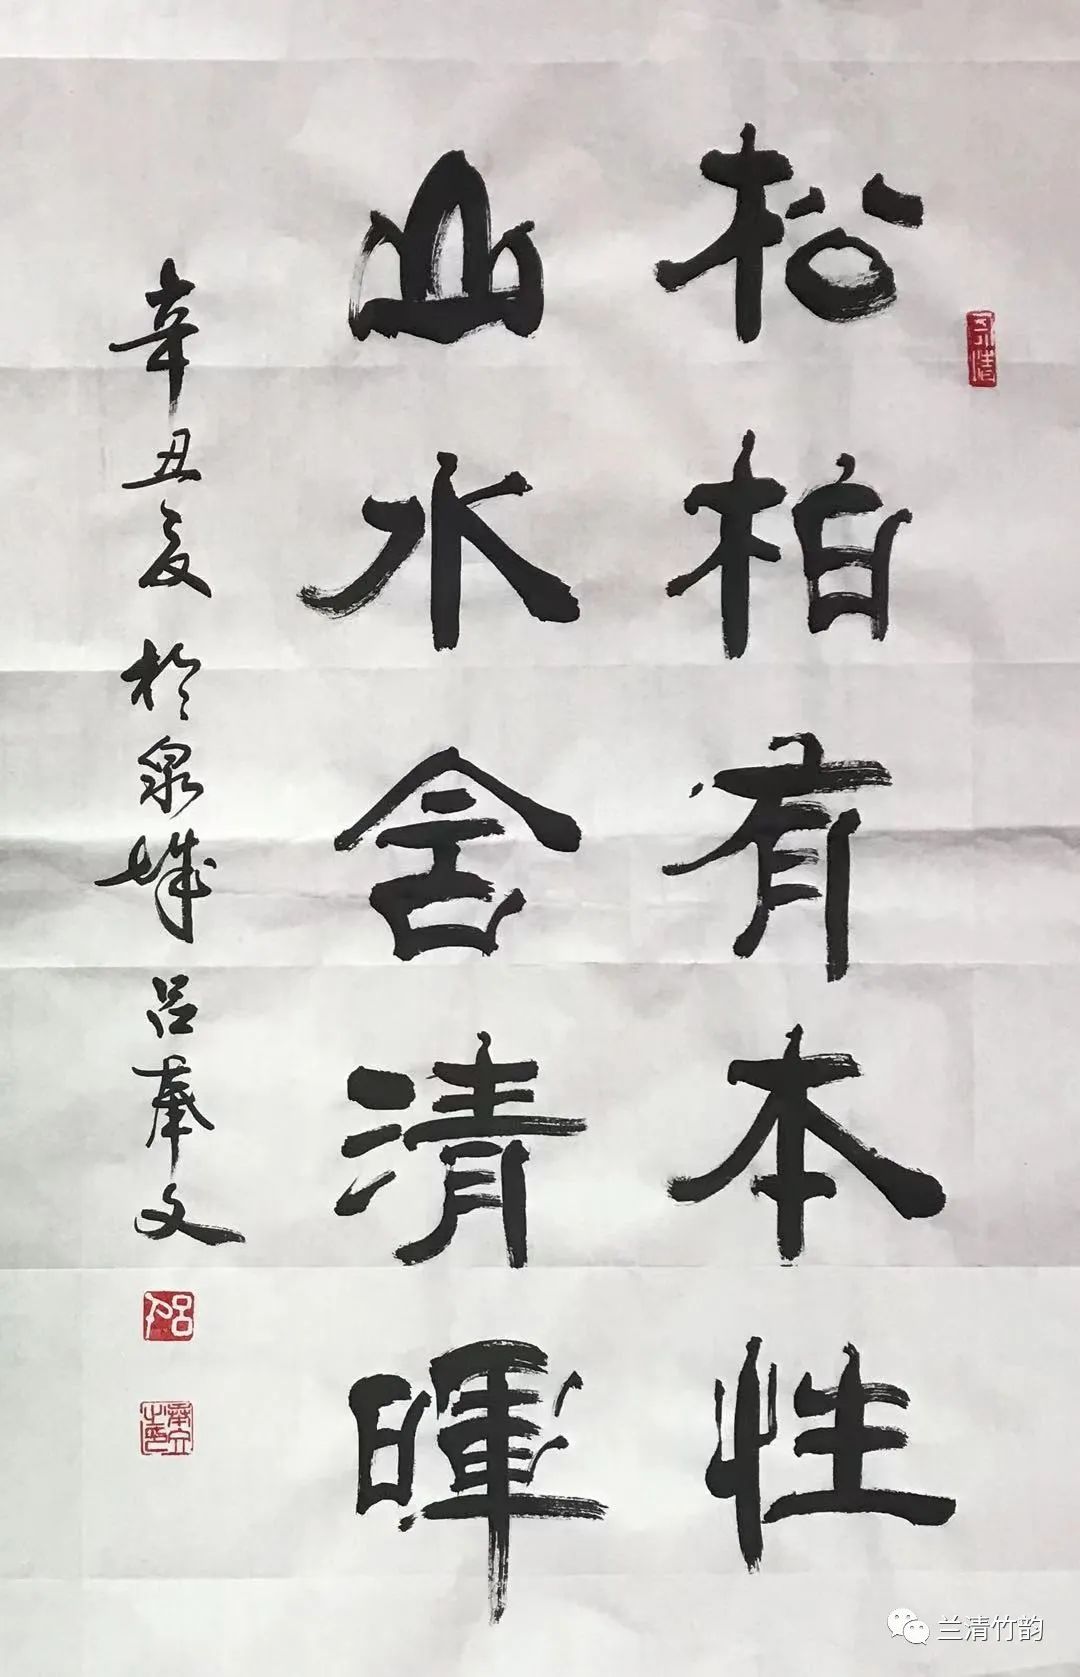 松柏有本性
山水含清暉
辛丑夏於泉城吕奉文
兰清竹韵